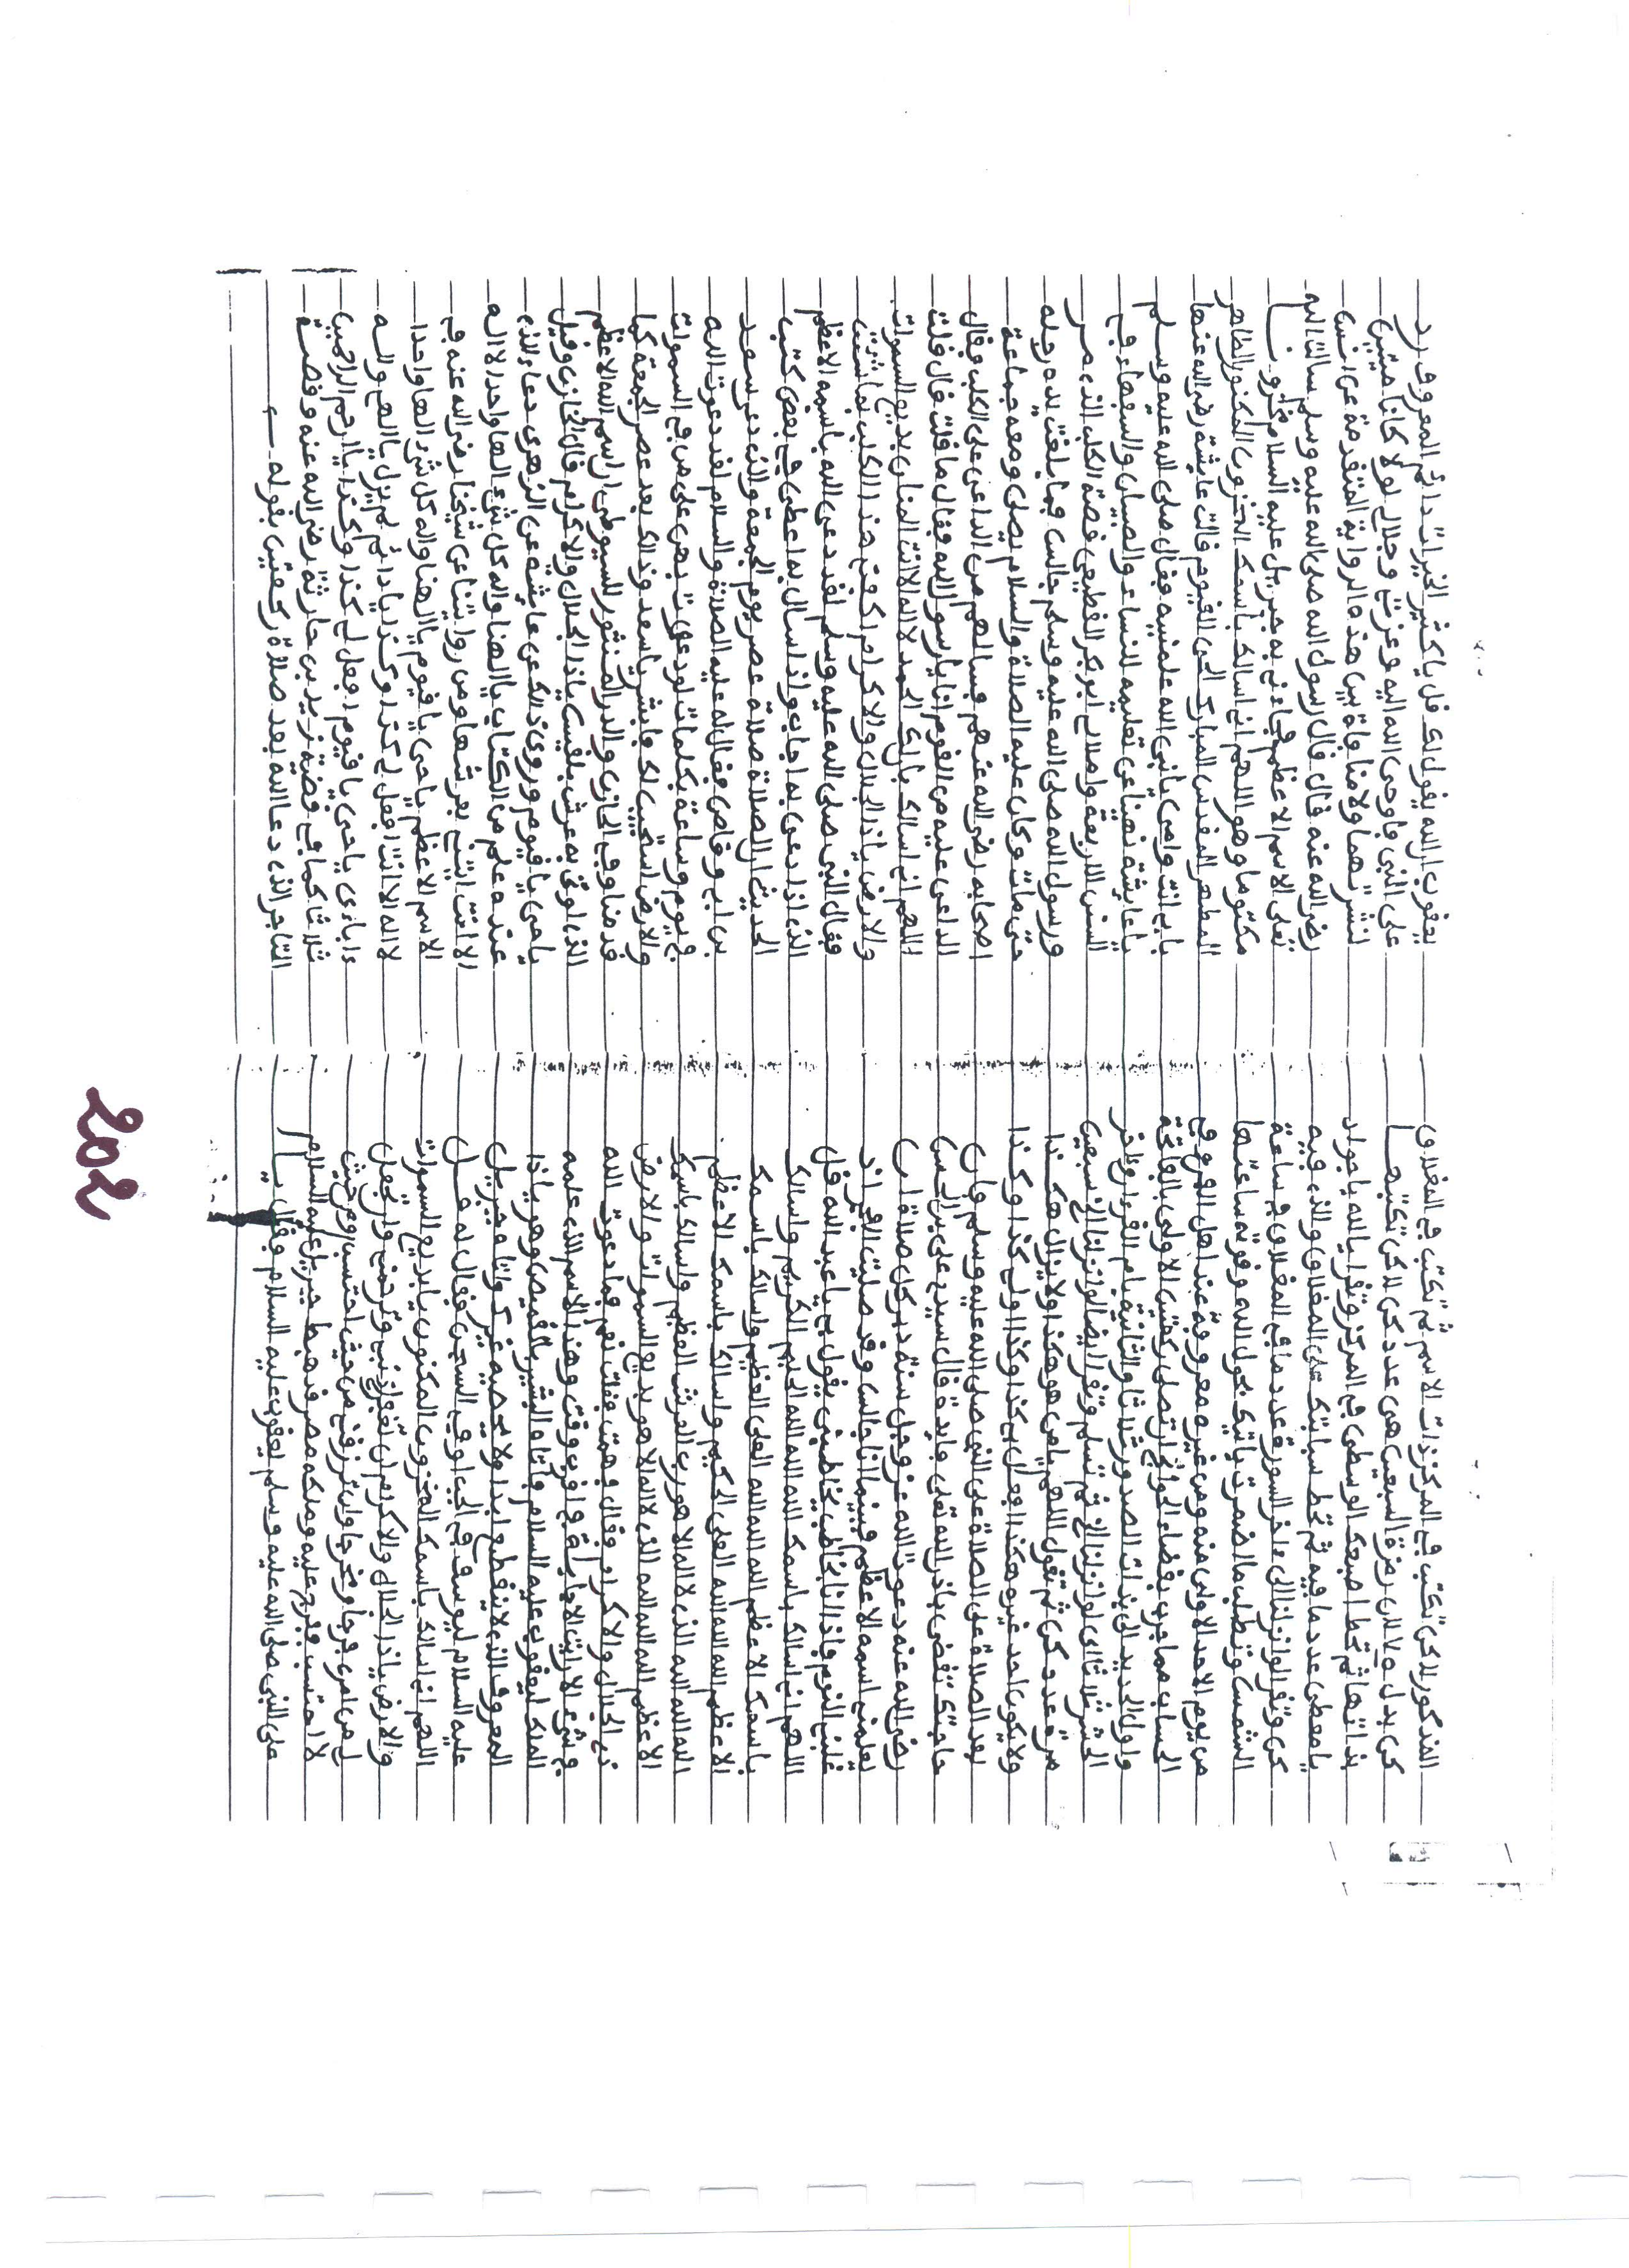 المذكور لاكن تكتب في المركز ذات الاسم ثم تكتب في المغلاق
كن بدل ولا لان رمزة السبعين هي عدد كن لاكن تكتبها
بذاتها ثم تحط اصبعك الوسطى في المركز وتقرا يا الله يا جواد
يا معطي عدد ما فيه ثم تحط سبابتك على المغلاق والذي فيه
كن وتقرا لو انزلنا الى ءاخر السورة عدد ما في المغلاق في ساعة
الشمس وتطلب ما اضمرت ياتيك بحول الله وقوته ساعتها
من يوم الاحد الاولى منه ومن غيره معروفة عند اهل الفن وفي
الحساب مما جرب لقضاء الحوائج ان تصلي ركعتين الاولى بالفاتحة
واول الحديد الى بذات الصدور ثلاثا والثانية بام القرءان وءاخر
الحشر ثلاثا اي لو انزلنا الخ ثم تسلم وتقرا ايضا لو انزلنا الخ سبعين
مرة عدد كن ثم تقول اللهم يا من هو هكذا ولا يزال هكذا
ولا يكون احد غيره هكذا افعل لي كذا وكذا اول كذا وكذا
بعد الصلاة على الصلاة على النبي صلى الله عليه وسلم فان
حاجتك تقضى باذن الله تعلى فايدة قال سيدي علي بن الحسن
رضي الله عنه دعوت الله عز وجل سنة دبر كل صلاة ان
يعلمني اسمه الاعظم فبينما انا جالس وقد صليت الفجر اذ
غلبني النوم فاذا انا بخاطب يخاطبني يقول لي يا عبد الله قل
اللهم اني اسالك باسمك الله الله الله الحليم الكريم واسالك
باسمك الاعظم الله الله الله العلي العظيم واسالك باسمك
الاعظم الله الله الله العلي الحكيم واسالك باسمك الاعظم
الله الله الله الذي لا اله الا هو رب العرش العظيم واسالك باسمك
الاعظم الله الله الله الذي لا اله الا هو بديع السموات والارض
ذي الجلال والاكرام فقال وفهمت فقلت نعم فما دعوت الله
في شيء الا رايت الاجابة في اقرب وقت وهذا الاسم الذي علمه
الملك ليعقوب عليه السلام فاتاه البشير بالقميص وهو يا ذا
المعروف الذي لا ينقطع ابدا ولا يحصيه غيرك واتا جبريل
عليه السلام ليوسف في الجب او في السجن فقال له قل
اللهم اني اسالك باسمك المخزون المكنون يا بديع السموات
والارض يا ذا الجلال والاكرام ان تغفر لي ذنبي وترحمني وان تجعل
لي من امري فرجا ومخرجا وان ترزقني من حيث احتسب ومن حيث
لا احتسب ففرج عليه وملكه مصر وقد هبط جبريل عليه السلام
على النبي صلى الله عليه وسلم ليعقوب عليه السلام وقال يا
يعقوب ان الله يقول لك قل يا كثير الخير يا دائم المعروف رد
علي ابني فاوحى الله اليه وعزتي وجلالي لو كانا ميتين
لنشرتهما ولا منافاة بين هذه الرواية المتقدمة عن انس
رضي الله عنه قال قال رسول الله صلى الله عليه وسلم سالت الله
تعلى الاسم الاعظم فجاءني به جبريل عليه السلام مخزونا
مكتوما وهو اللهم اني اسالك باسمك المخزون المكنون الطاهر
المطهر المقدس المبارك الحي القيوم قالت عايشة رضي الله عنها
بابي انت وامي يا نبي الله علمنيه فقال صلى الله عليه وسلم
يا عايشة نهينا عن تعليمه للنساء والصبيان والسفهاء في
السنن الاربعة وامالي ابو بكر القطيعي قصة الكلب الذي مر
ورسول الله صلى الله عليه وسلم جالس فما بلغت يده رجله
حتى مات وكان عليه الصلاة والسلام يصلي ومعه جماعة
اصحابه رضي الله عنهم فسالهم من الداعي على الكلب فقال
الداعي عليه من القوم انا يا رسول الله فقال ما قلت قال قلت
اللهم اني اسالك بان لك الحمد لا اله الا انت المنان بديع السموات
والارض يا ذا الجلال والاكرام اكفني هذا الكلب بما شئت
فقال النبي صلى الله عليه وسلم لقد دعى الله باسمه الاعظم
الذي اذا دعي به اجاب واذا سال به اعطى في بعض كتب
الحديث ان الصلاة صلاة عصر يوم الجمعة والذي دعى سعد
بن ابي وقاص فقال له عليه الصلاة والسلام لقد دعوت الله
في يوم وساعة بكلمات لو دعوت بهن على من في السموات
والارض استجيب لك فابشر يا سعد وذلك بعد عصر الجمعة كما
قدمنا وفي الخازن والدر المنثور للسيوطي ان اسم الله الاعظم
الذي اوتي به عرش بلقيس يا ذا الجلال والاكرام قال الخازن وقيل
يا حي يا قيوم وروي ذلك عن عايشة عن الزهري دعاء الذي
عنده علم من الكتاب يا الهنا واله كل شيء الها واحدا لا اله
الا انت ايتني بعرشها ومن روايتنا عن شيخنا رضي الله عنه في
الاسم الاعظم يا حي يا قيوم يا الهنا واله كل شيء الها واحدا
لا اله الا انت افعل لي كذا وكذا يا دائم لم يزل يا الهي واله
ءاباءي يا حي يا قيوم افعل لي كذا وكذا يا ارحم الراحمين
ثلاثا كما في قضية زيد بن حارثة رضي الله عنه وقصة
التاجر الذي دعا الله بعد صلاة ركعتين بقوله
202